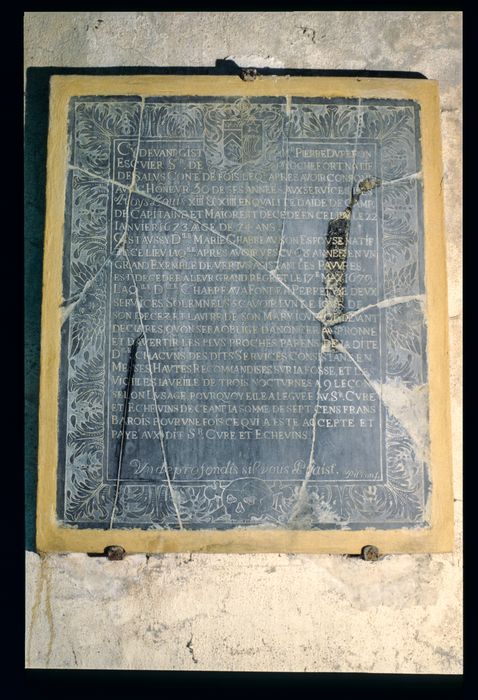 CY DEVANT GIST PIERRE DV PERRON
ESCVIER Sr. DE ROCHEFORT NATIF
DE SALVS CONTÉ DE FOIS LEQl. APRES AVOIR CONSOMÉ
AVEC HONEVR 50 DE SES ANNEES AVX SERVICES DES
ROYS LOVIS XIII ET XIIII EN QVALITÉ D'AIDE DE CAMP
DE CAPITAINE ET MAIOR EST DECEDE EN CE LIEV LE 22
IANVIER 1673 AGÉ DE 74 ANS
GIST AVSSY Dlle. MARIE CHABREAV SON ESPOVSE NATIF
DE CE LIEV LAQlle. APRES AVOIR VESCV 68 ANNEES EN VN
GRAND EXEMPLE DE VERTVS ASISTANT LES PAVVRES
EST DECEDEE A LEVR GRAND REGRET LE 17e. MAY 1679
LAQlle. Dlle. CHABREAV A FONDÉ A PERPETVITÉ DEVX
SERVICES SOLEMNELS SCAVOIR LVN LE IOVR DE
SON DECEZ ET LAVTRE DE SON MARY IOVR DEVANT
DECLARÉS QV'ON SERA OBLIGÉ D'ANONCER AV PRONNE
ET D'AVERTIR LES PLVS PROCHES PARENS DE LA DITE
Dlle. CHACVNS DES DITS SERVICES CONSISTANS EN
MESSES HAVTES RECOMANDISES SVR LA FOSSE ET LES
VIGILES LA VEILLE DE TROIS NOCTVRNES A 9 LECONS
SELON L'VSAGE POVRQVOY ELLE A LEGVÉE AV Sr. CVRÉ
ET ECHEVINS DE CEANT LA SOMME DE SEPT CENS FRANS
BAROIS POVR VNE FOIS CE QVI A ESTÉ ACCEPTÉ ET
PAYÉ AVX DIT Sr. CVRÉ ET ECHEVINS
Vn de profondis s'il vous plaist.